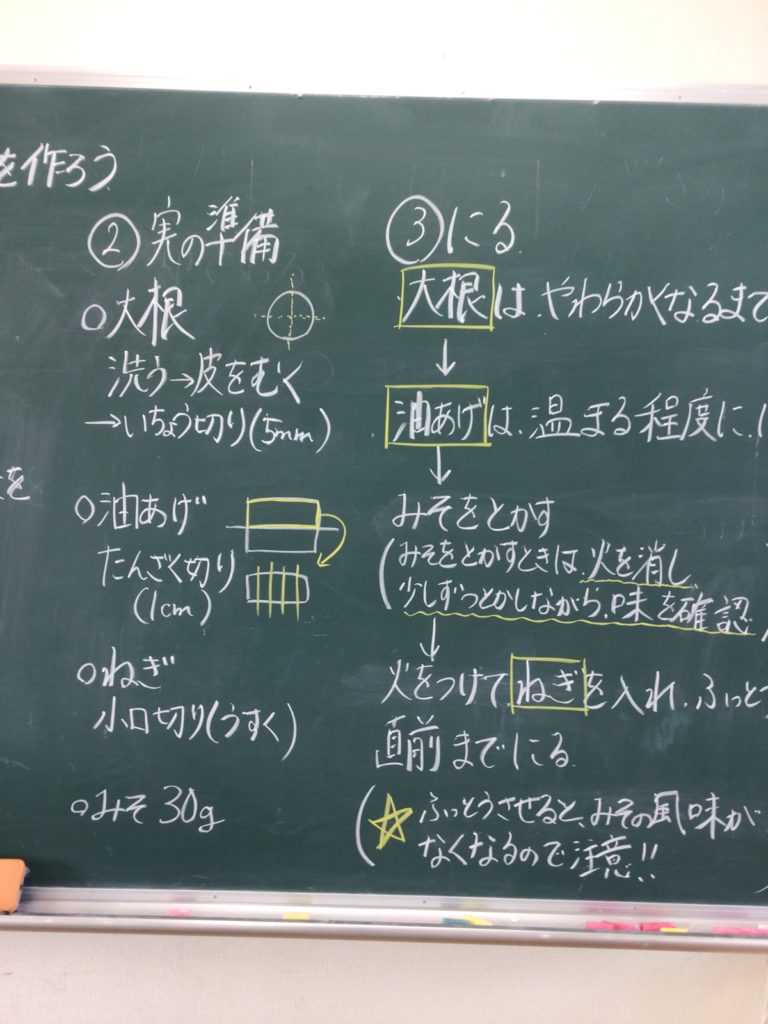 を作ろう
を
②実の準備
○大根
洗う→皮をむく
→いちょう切り(5mm)
○油あげ
たんざく切り
(1cm)
○ねぎ
小口切り(うすく)
○みそ30g
③にる
大根は、やわらかくなるまで
↓
油あげは、温まる程度に、
↓
みそをとかす
(みそをとかすときは、火を消し、
少しずつとかしながら、味を確認)
↓
火をつけて、ねぎを入れ、ふっとう
直前までにる
(☆ふっとうさせると、みその風味が
なくなるので注意!!